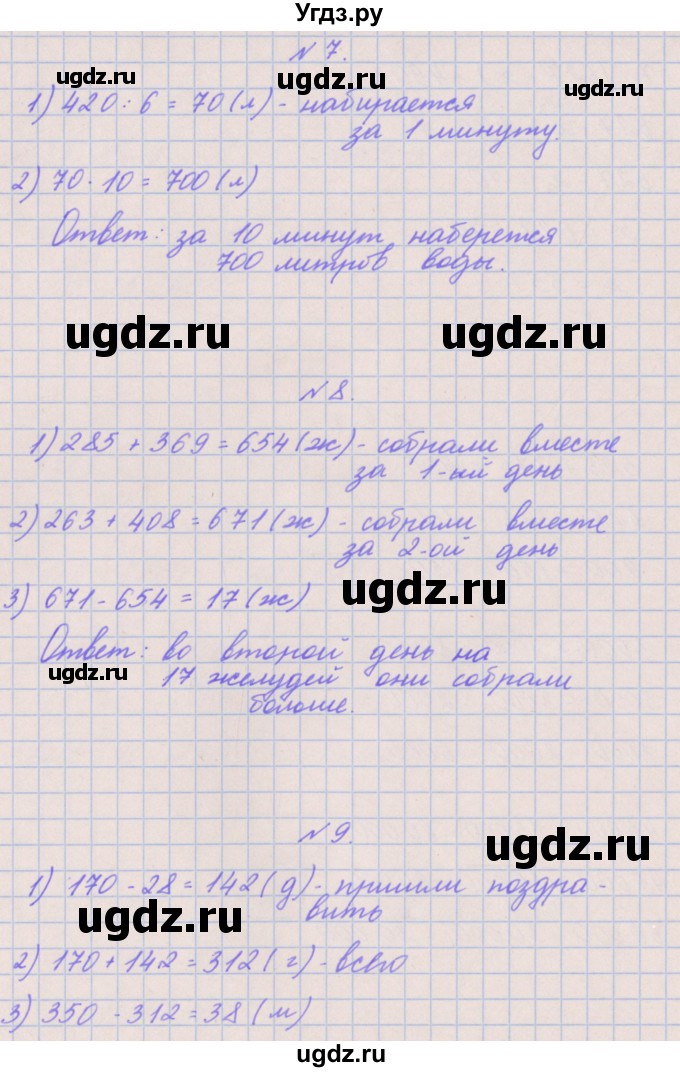 Угдз.ру
№7.
ugdz.ru ugdz.ru ugdz.ru
1) 420 : 6 = 70 (л) - набирается
за 1 минуту.
2) 70 · 10 = 700 (л)
Ответ: за 10 минут наберется
700 литров воды.
ugdz.ru ugdz.ru
№8.
1) 285 + 369 = 654 (ж) - собрали вместе
за 1-ый день
2) 263 + 408 = 671 (ж) - собрали вместе
за 2-ой день
3) 671 - 654 = 17 (ж)
ugdz.ru
Ответ: во второй день на
ugdz.ru
17 желудей они собрали
больше.
№9.
ugdz.ru
1) 170 - 28 = 142 (д) - пришли поздра-
вить
ugdz.ru
2) 170 + 142 = 312 (г) - всего
3) 350 - 312 = 38 (м)
ugdz.ru